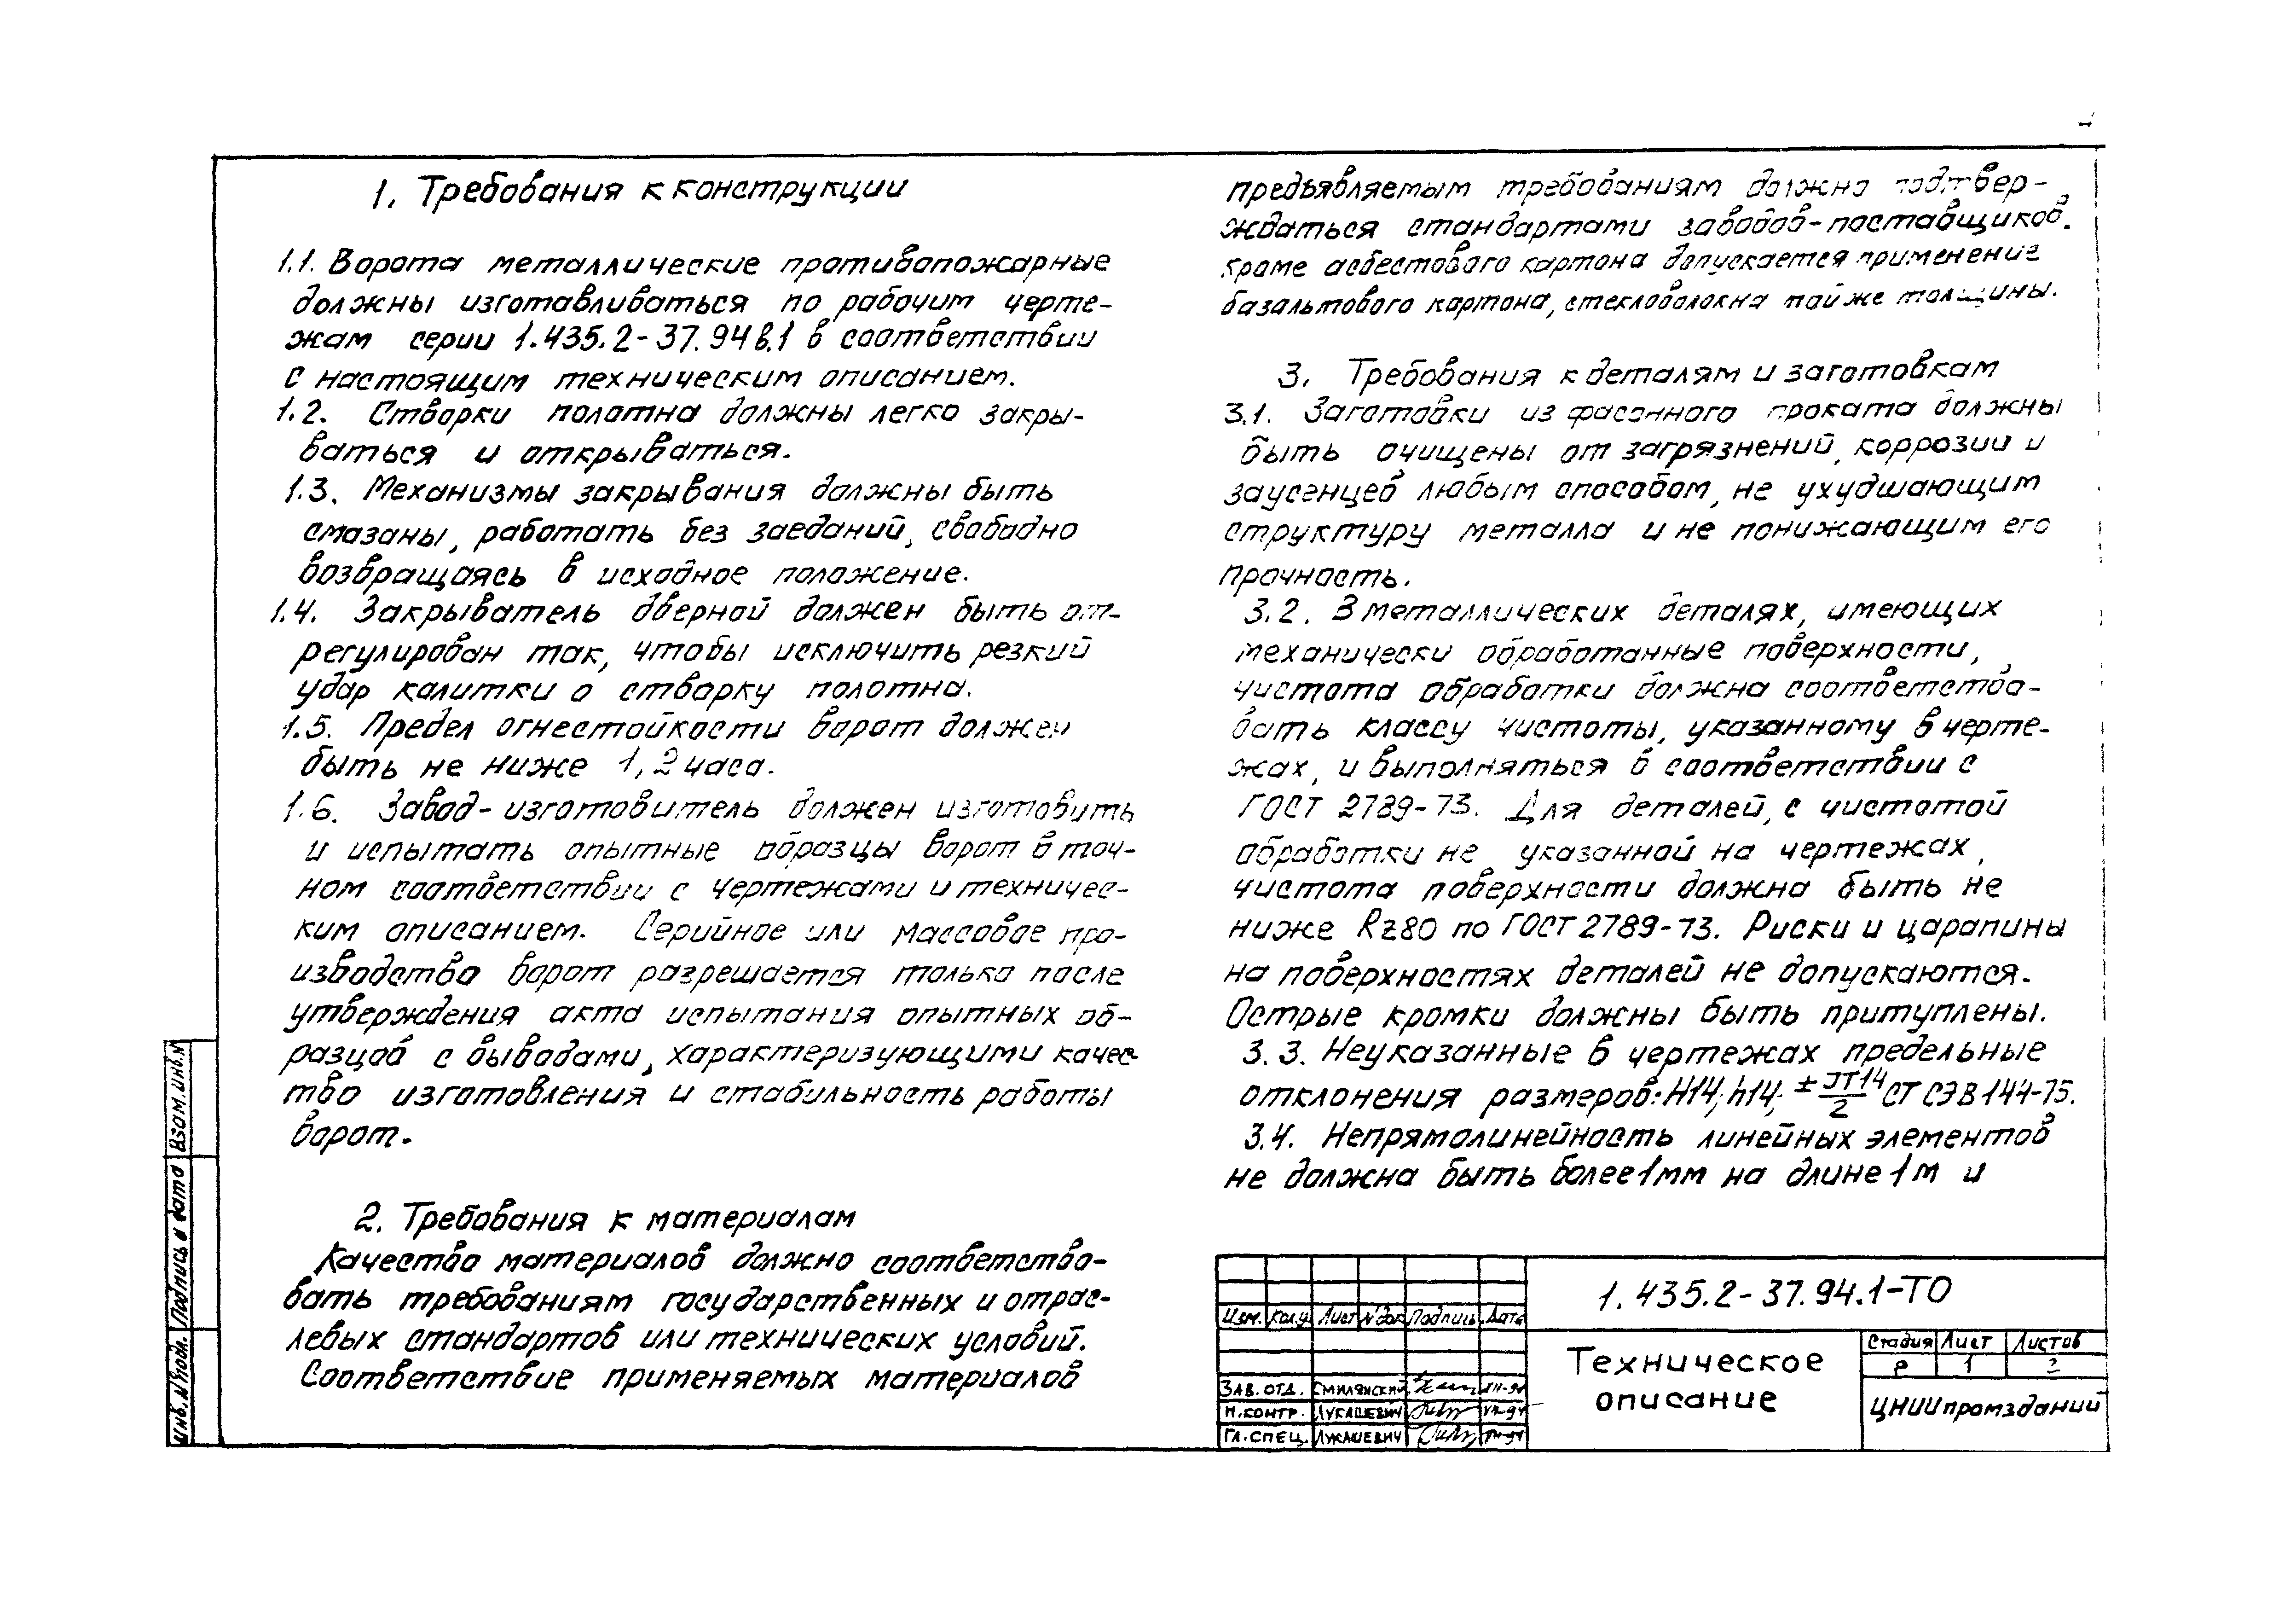 1. Требования к конструкции
1.1. Ворота металлические противопожарные
должны изготавливаться по рабочим черте-
жам серии 1.435.2-37.94 в.1 в соответствии
с настоящим техническим описанием.
1.2. Створки полотна должны легко закры-
ваться и открываться.
1.3. Механизмы закрывания должны быть
смазаны, работать без заеданий, свободно
возвращаясь в исходное положение.
1.4. Закрыватель дверной должен быть от-
регулирован так, чтобы исключить резкий
удар калитки о створку полотна.
1.5. Предел огнестойкости ворот должен
быть не ниже 1,2 часа.
1.6. Завод-изготовитель должен изготовить
и испытать опытные образцы ворот в точ-
ном соответствии с чертежами и техничес-
ким описанием. Серийное или массовое про-
изводство ворот разрешается только после
утверждения акта испытания опытных об-
разцов с выводами, характеризующими качес-
тво изготовления и стабильность работы
ворот.
2. Требования к материалам
Качество материалов должно соответство-
вать требованиям государственных и отрас-
левых стандартов или технических условий.
Соответствие применяемых материалов
предъявляемым требованиям должно подтвер-
ждаться стандартами заводов-поставщиков.
Кроме асбестового картона допускается применение
базальтового картона, стекловолокна той же толщины.
3. Требования к деталям и заготовкам
3.1. Заготовки из фасонного проката должны
быть очищены от загрязнений, коррозии и
заусенцев любым способом, не ухудшающим
структуру металла и не понижающим его
прочность.
3.2. В металлических деталях, имеющих
механически обработанные поверхности,
чистота обработки должна соответство-
вать классу чистоты, указанному в черте-
жах, и выполняться в соответствии с
ГОСТ 2789-73. Для деталей, с чистотой
обработки не указанной на чертежах,
чистота поверхности должна быть не
ниже Rz80 по ГОСТ 2789-73. Риски и царапины
на поверхностях деталей не допускаются.
Острые кромки должны быть притуплены.
3.3. Неуказанные в чертежах предельные
отклонения размеров: H14; h14; ± IT14/2 СТ СЭВ 144-75.
3.4. Непрямолинейность линейных элементов
не должна быть более 1мм на длине 1м и
Взам.инв.N
Подпись и дата
Инв.N подл.
1.435.2-37.94.1-ТО
Изм. Кол.у Лист N док Подпись Дата
Техническое
описание
Стадия Лист Листов
Р 1
ЦНИИпромзданий
Зав. отд. Смилянский
Н.контр. Лукашевич
Гл.спец. Лукашевич